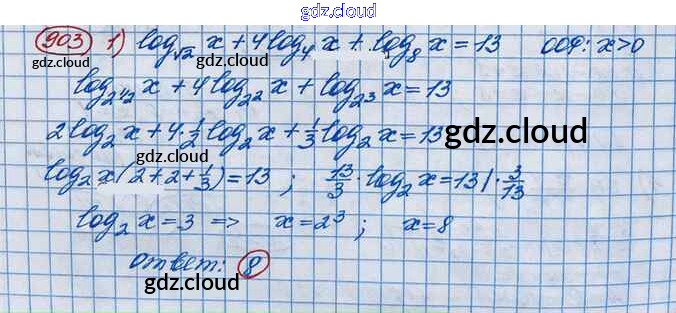 gdz.cloud
903 1) log_√2 x + 4log_4 x + log_8 x = 13 ООФ: x>0
gdz.cloud
log_{2^{1/2}} x + 4 log_{2^2} x + log_{2^3} x = 13
gdz.cloud
2log_2 x + 4·1/2 log_2 x + 1/3 log_2 x = 13 gdz.cloud
gdz.cloud
log_2 x (2+2+1/3) = 13 ; 13/3 · log_2 x = 13 | · 3/13
gdz.cloud
log_2 x = 3 => x = 2^3 ; x = 8
gdz.cloud
Ответ: 8
gdz.cloud
gdz.cloud